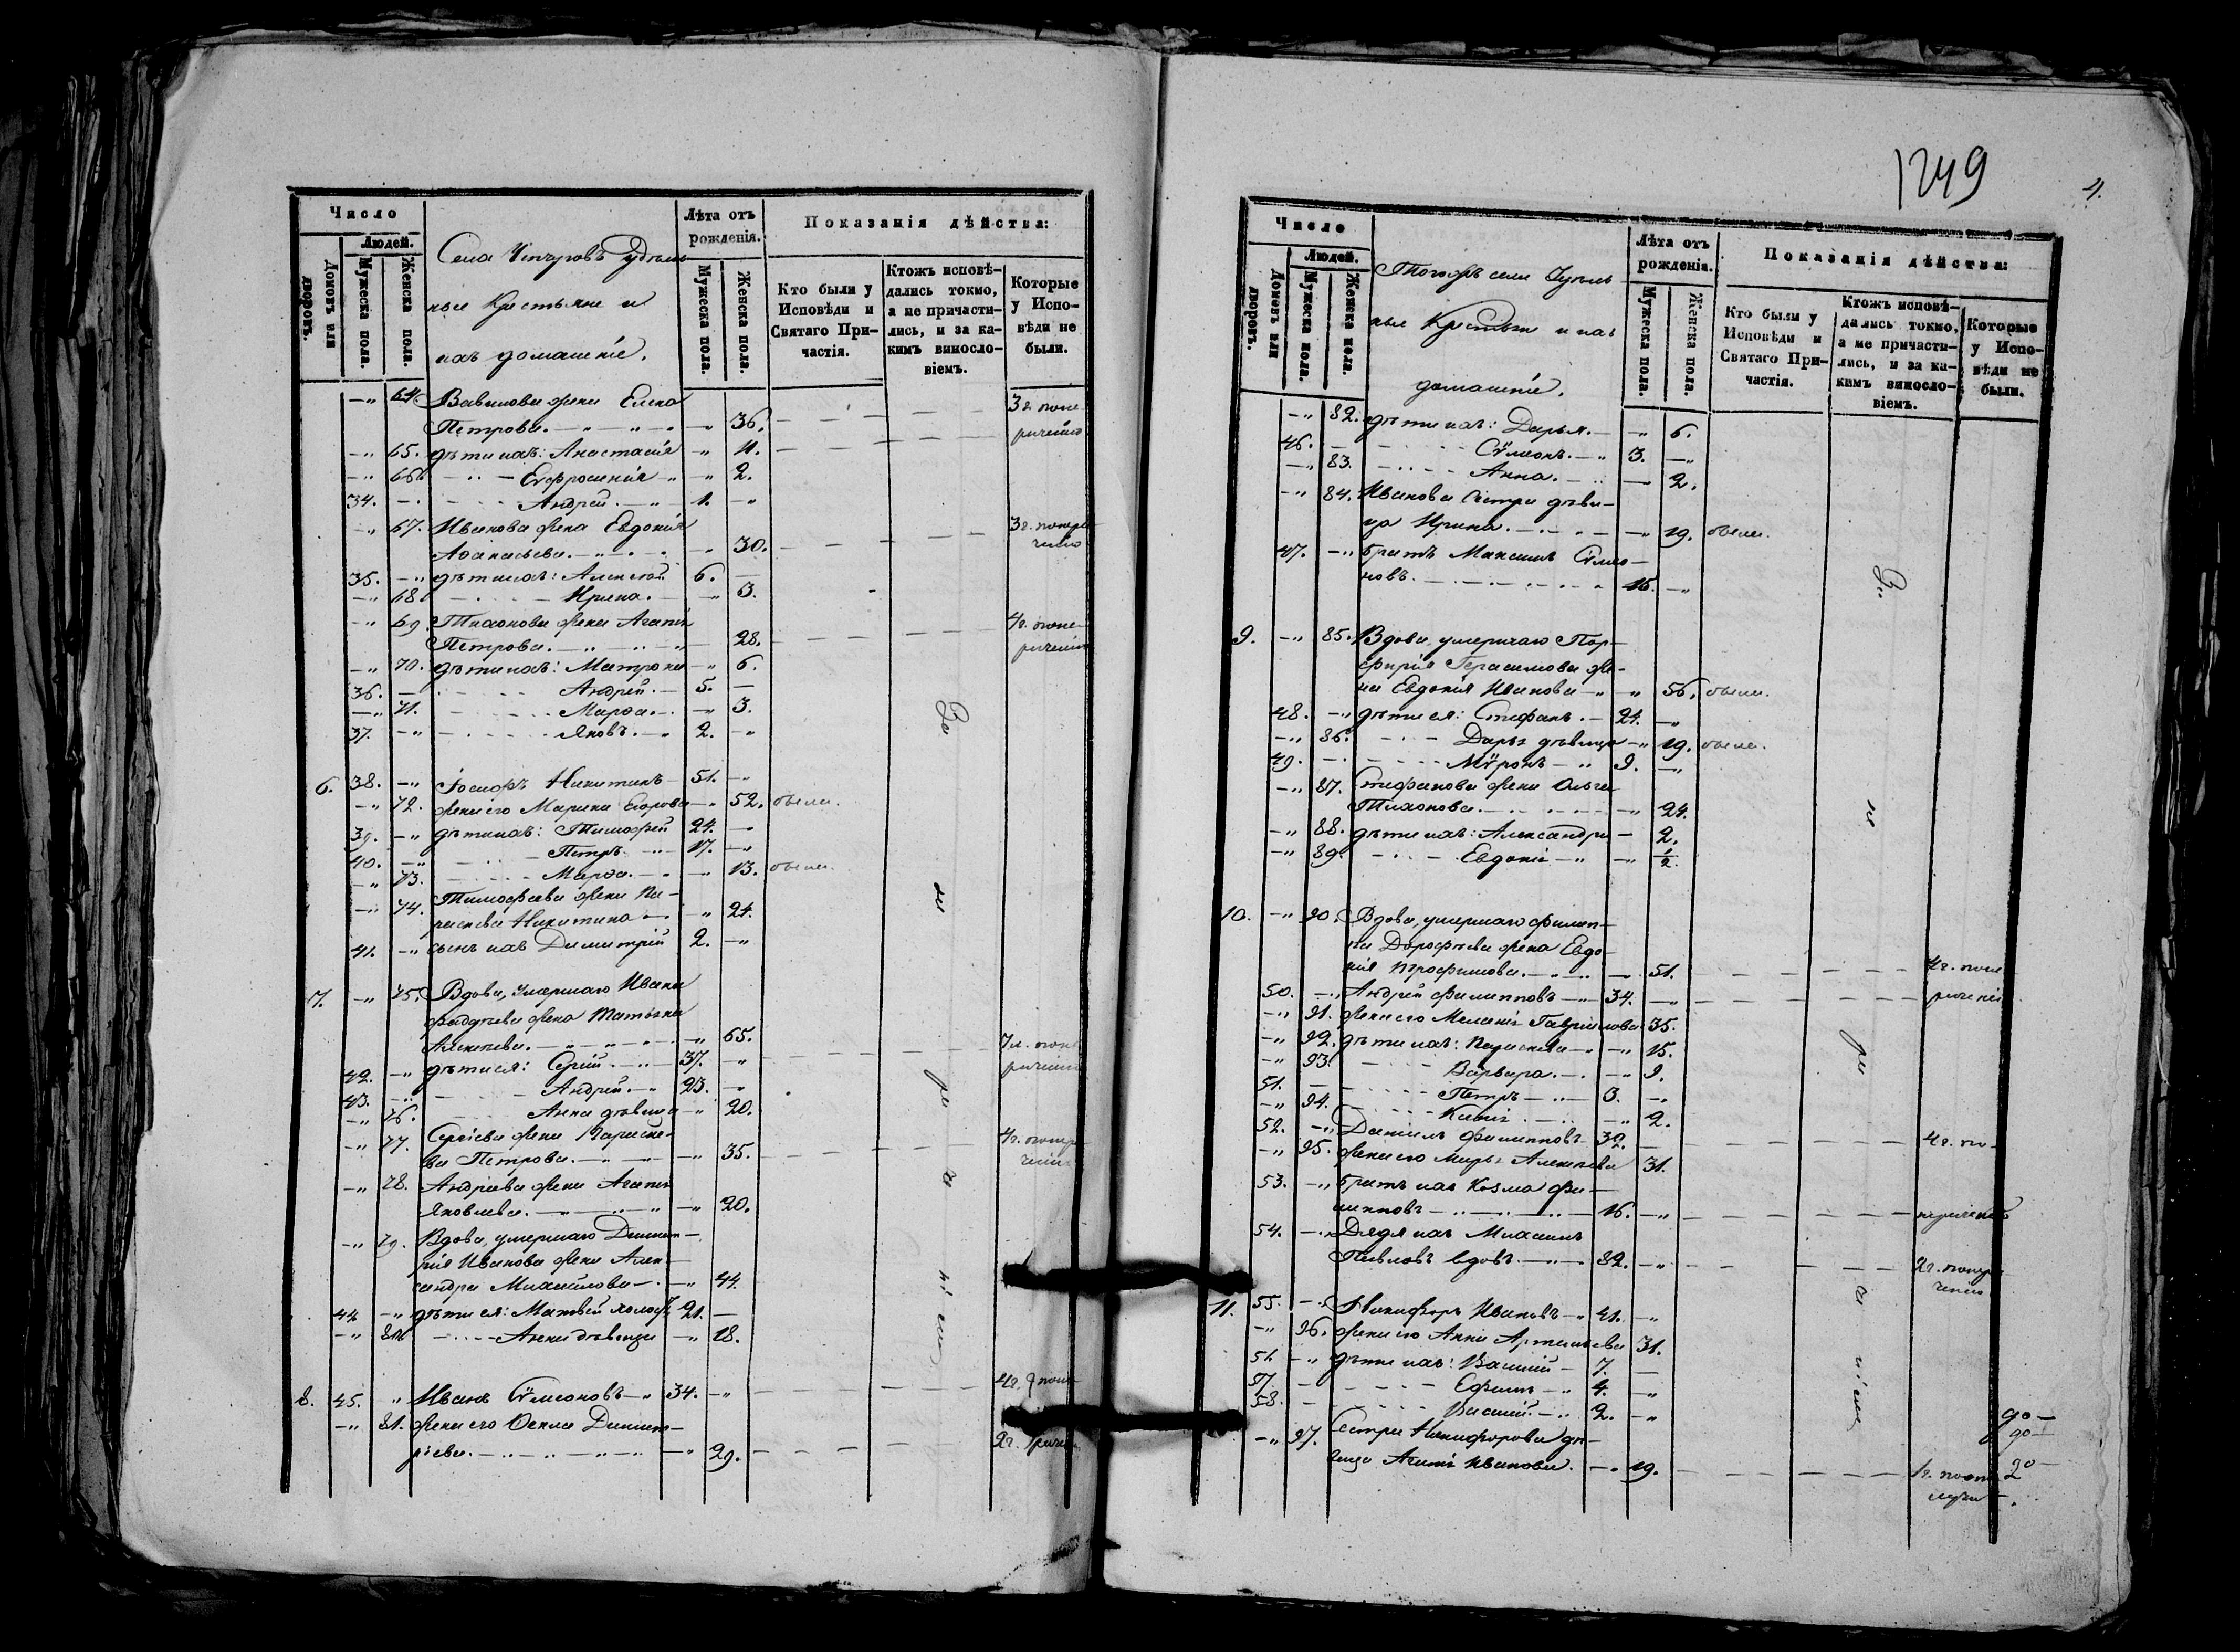 Число
Людей.
Домовъ или дворовъ.
Мужеска пола.
Женска пола.
Села удѣль-
ные Крестьяне и
ихъ домашніе.
Лѣта отъ рожденія.
Мужеска пола.
Женска пола.
Показанія дѣйства:
Кто были у Исповѣди и Святаго При-частія.
Ктожъ исповѣ-дались токмо, а не причасти-лись, и за ка-кимъ винословіемъ.
Которые у Испо-вѣди не были.
-„ 64 Вавилова жена Елена 3 г.
Петрова. -„ 36.
-„ 65. дѣти ихъ: Анастасія -„ 4.
-„ 66 Еѵфросинія -„ 2.
34. - Андрей. 1. -„
-„ 67. Иванова жена Евдокія 3 г.
Аѳанасьева. -„ 30.
35. -„ дѣти ихъ: Алексѣй 6. -
-„ 68. Ирина. -„ 3.
-„ 69. Тихонова жена Агапія 4 г.
Петрова. -„ 28.
-„ 70. дѣти ихъ: Матрона -„ 6.
36. - Андрей. 5. -
-„ 71. Марѳа. -„ 3.
37. -„ Яковъ. 2. -„
6. 38. -„ Іосифъ Никитинъ 51. -„
-„ 72. жена его Марина Егорова -„ 52. были.
39. -„ дѣти ихъ: Тимофей 24. -
40. -„ Петръ. 17. -„
-„ 73. Марѳа. -„ 13. были.
-„ 74. Тимофеева жена Па-
раскева Никитина -„ 24.
41. -„ сынъ ихъ Димитрій 2. -„
7. -„ 75. Вдова, умершаго Ивана
Фадѣева жена Татьяна
Алексѣева. -„ 65. 7 л.
42. -„ дѣти ея: Сергій. 37. -„
43. -„ Андрей. 23. -„
-„ 76. Анна дѣвица -„ 20.
-„ 77. Сергіева жена Параске- 4 г.
ва Петрова. -„ 35.
-„ 78. Андреева жена Агапія
Яковлева. -„ 20.
-„ 79. Вдова, умершаго Димит-
рія Иванова жена Алек-
сандра Михайлова -„ 44.
44 -„ дѣти ея: Матвей холос. 21. -
-„ 80. Анна дѣвица -„ 18.
8. 45. „ Иванъ Сѵмеоновъ 34. -„ 4 г.
-„ 81. жена его Димит-
ріева. -„ 29. 2 г.
За
не
ра
че
ніемъ
1249
4.
Число
Людей.
Домовъ или дворовъ.
Мужеска пола.
Женска пола.
Тогожъ села Удѣль-
ные Крестьяне и ихъ
домашніе.
Лѣта отъ рожденія.
Мужеска пола.
Женска пола.
Показанія дѣйства:
Кто были у Исповѣди и Святаго При-частія.
Ктожъ исповѣ-дались токмо, а не причасти-лись, и за ка-кимъ винословіемъ.
Которые у Испо-вѣди не были.
-„ 82. дѣти ихъ: Дарья. -„ 6.
46. - Сѵмеонъ. 3. -„
-„ 83. Анна. - 2.
-„ 84. Иванова сестра дѣви-
ца Ирина. -„ 19. были.
47. -„ братъ Максимъ Сѵмео-
новъ. 15. -„
9. -„ 85. Вдова, умершаго Пор-
фирія Герасимова же-
на Евдокія Иванова -„ 56. были.
48. -„ дѣти ея: Стефанъ. 24. -„
-„ 86. Дарья дѣвица -„ 19. были.
49. - Мѵронъ 9. -„
-„ 87. Стефанова жена Ольга
Тихонова. -„ 24.
-„ 88. дѣти ихъ: Александра - 2.
-„ 89. Евдокія -„ 1/2.
10. -„ 90. Вдова, умершаго Филип-
па Дорофѣева жена Евдо-
кія Трофимова. - 51. 4 г.
50. -„ Андрей Филипповъ 34. -„
-„ 91. жена его Меланія Гавриилова 35.
-„ 92. дѣти ихъ: Параскева -„ 15.
-„ 93. Варвара. -„ 9.
51. - Петръ 3. -„
-„ 94. -„ 2.
52. -„ Даніилъ Филипповъ 32. - 4 г.
-„ 95. жена его Марья Алексѣева 31.
53. -„ братъ ихъ Козма Фи-
липповъ 16. -„
54. -„ Дядя ихъ Михаилъ
Павловъ вдовъ. 82. -„ 2 г.
11. 55. -„ Никифоръ Ивановъ 41. -„
-„ 96. жена его Анна Артемьева 31.
-„ дѣти ихъ: 7. -
57. - Ефимъ 4. -„
58. - Василій. 2. -„
-„ 97. Сестра Никифорова дѣ-
вица Иванова. -„ 19. 1 г.
За
не
ра
че
ніемъ